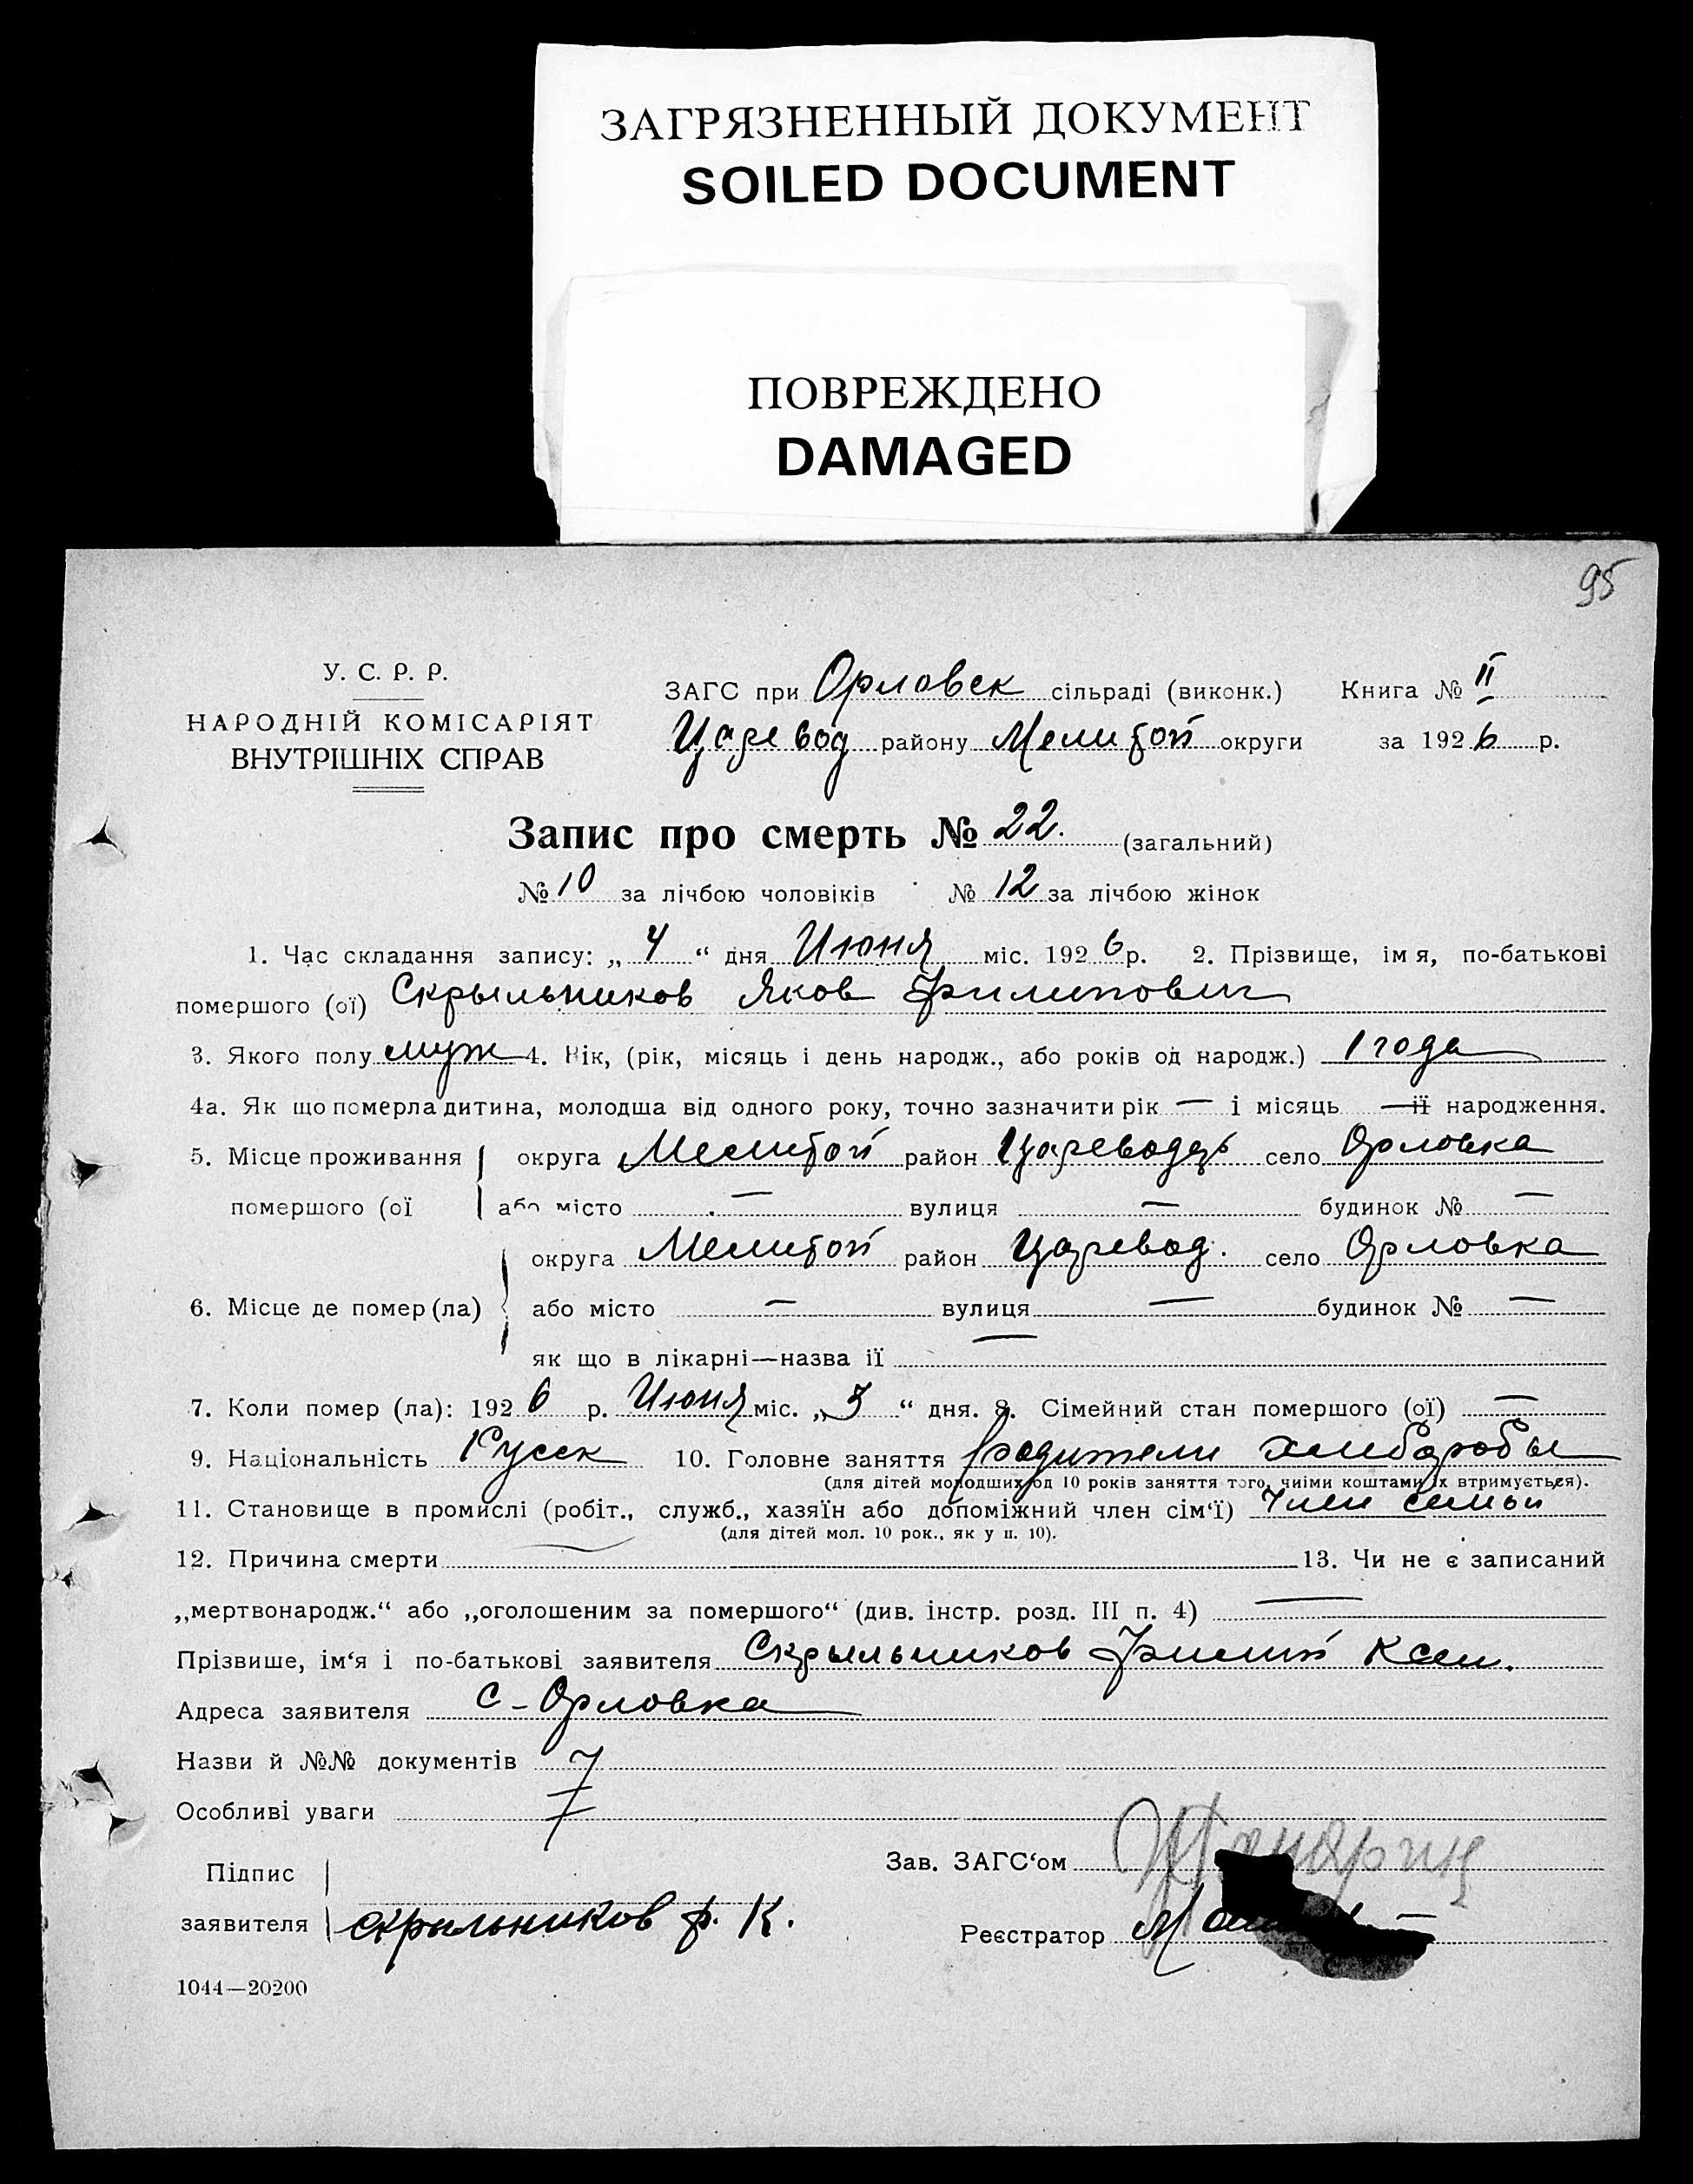 ЗАГРЯЗНЕННЫЙ ДОКУМЕНТ
SOILED DOCUMENT
ПОВРЕЖДЕНО
DAMAGED
95
У. С. Р. Р.
НАРОДНІЙ КОМІСАРІЯТ
ВНУТРІШНІХ СПРАВ
ЗАГС при Орловск сільраді (виконк.) Книга № II
Царевод району Мелитоп округи за 1926 р.
Запис про смерть № 22. (загальний)
№ 10 за лічбою чоловіків № 12 за лічбою жінок
1. Час складання запису: „ 4 “ дня Июня міс. 1926 р. 2. Прізвище, ім я, по-батькові
помершого (ої) Скрыльников Яков Филипович
3. Якого полу муж 4. Вік, (рік, місяць і день народж., або років од народж.) 1 года
4а. Як що померла дитина, молодша від одного року, точно зазначити рік — і місяць — її народження.
5. Місце проживання округа Мелитоп район Цареводск село Орловка
помершого (ої або місто — вулиця — будинок № —
округа Мелитоп район Царевод. село Орловка
6. Місце де помер (ла) або місто — вулиця — будинок № —
як що в лікарні—назва її —
7. Коли помер (ла): 1926 р. Июня міс. „ 3 “ дня. 8. Сімейний стан помершого (ої) —
9. Національність Русск 10. Головне заняття родители хлиборобы
(для дітей молодших од 10 років заняття того, чиїми коштами їх втримується).
11. Становище в промислі (робіт., служб., хазяїн або допоміжний член сім‘ї) Член семьи
(для дітей мол. 10 рок., як у п. 10).
12. Причина смерти — 13. Чи не є записаний
„мертвонародж.“ або „оголошеним за помершого“ (див. інстр. розд. III п. 4) —
Прізвише, ім‘я і по-батькові заявителя Скрыльников Филип Ксен.
Адреса заявителя с-Орловка
Назви й №№ документів
Особливі уваги
Підпис
заявителя Скрыльников ф. К.
Зав. ЗАГС‘ом
Реєстратор
1044—20200